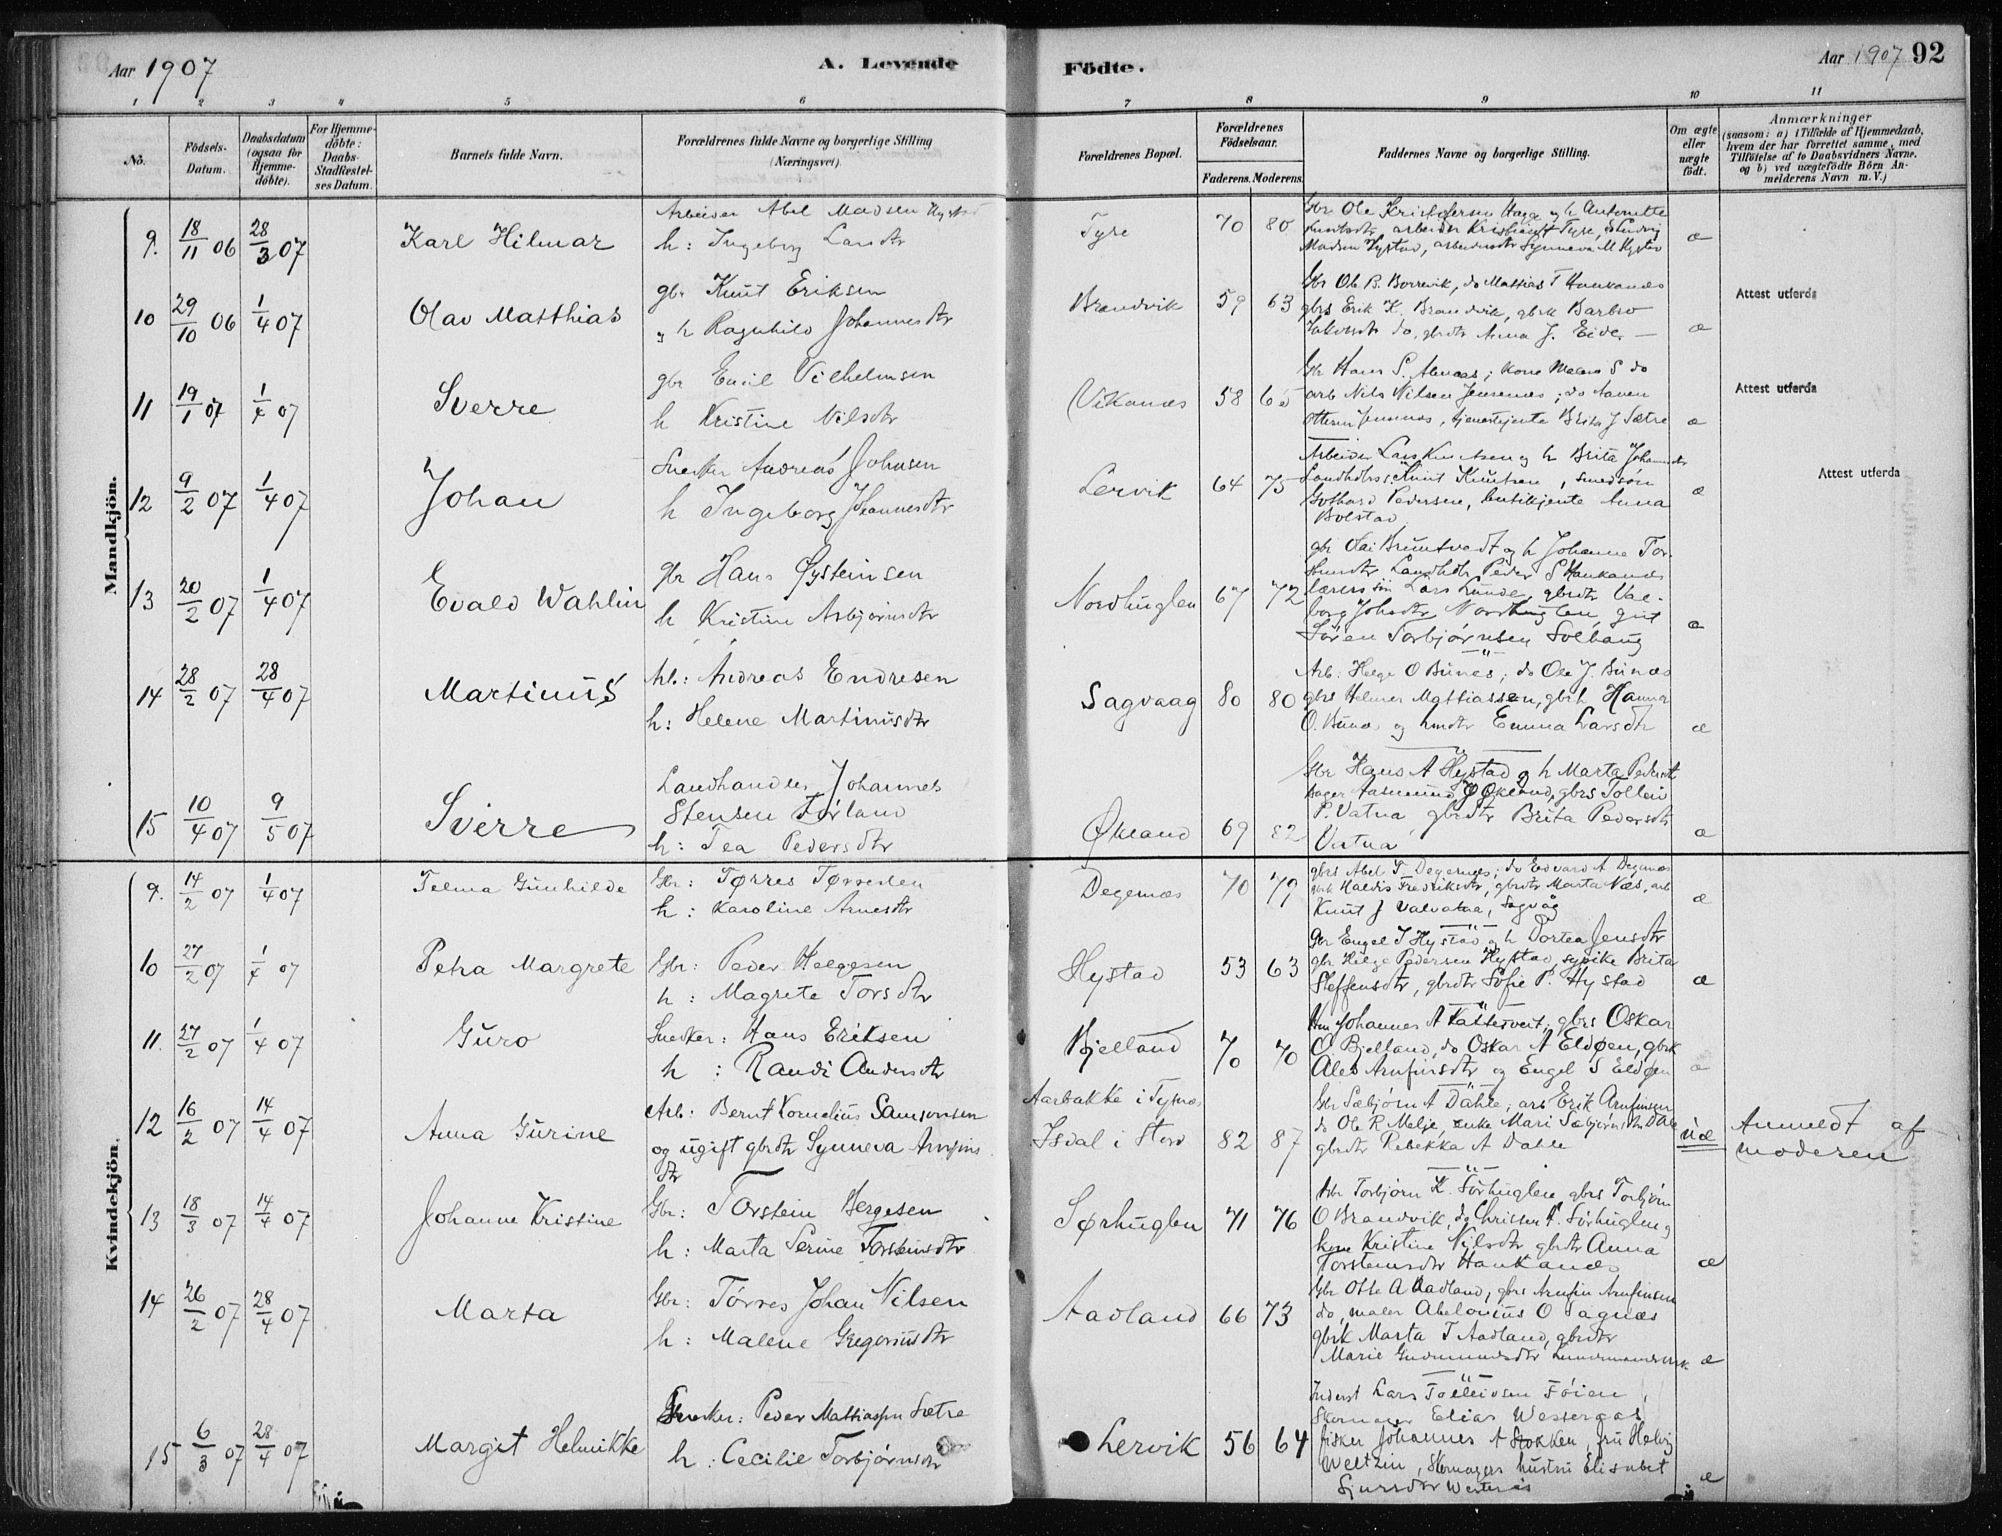 Aar 1907
A. Levende
Födte.
Aar 1907 92
1 2 3 4 5 6 7 8 9 10 11
No.
Födsels-Datum.
Daabsdatum (ogsaa for Hjemme-döbte).
For Hjemme-döbte: Daabs-Stadfæstel-ses Datum.
Barnets fulde Navn.
Forældrenes fulde Navne og borgerlige Stilling (Næringsvei).
Forældrenes Bopæl.
Forældrenes Födselsaar.
Faderens. Moderens.
Faddernes Navne og borgerlige Stilling.
Om ægte eller uægte födt.
Anmærkninger
(saasom: a) i Tilfælde af Hjemmedaab, hvem der har forrettet samme, med Tilföielse af to Daabsvidners Navne, og b) ved uægtefödte Börn An-melderens Navn m. V.)
Mandkjön.
9. 18/11 06 28/3 07 Karl Hilmar
Arbeider Abel Madsen Hystad
h: Ingeborg Larsdtr
Tyse 70 80
Gbr Ole Kristofersen Hage og h Antonette
arbeider Kristian Tyse, Ludvig
Madsen Hystad, arbeidersdtr Synneva M Hystad
æ
10 29/10 06 1/4 07 Olav Matthias
gbr Knut Eriksen
" h Ragnhild Johannesdtr
Brandvik 59 63
Gbr Ole B. Borrevik, do Mattias T Haukanæs
gbrs Erik K. Brandvik, gbrk Barbro
Jakobsdtr do, gbrdtr Anna J. Eide.
æ
Attest utferda
11 19/1 07 1/4 07 Sverre
gbr Emil Vilhelmsen
h Kristine Nilsdtr
Vikanæs 58 65
Gbr Hans S. Alenaas; kone S do
arb Nils Nilsen Jensenæs; do
Ottesen Jensenæs, tjenestejente Brita J Sætre
æ
Attest utferda
12 9/2 07 1/4 07 Johan
Snedker Andreas Johnsen
h Ingeborg Johannesdtr
Lervik 64 75
Arbeider Lars Knutsen og h Brita Johannesdtr
Landhdlrs Knut Knutsen, smedsøn
Gothard Pedersen, butikjente Anna
Bolstad
æ
Attest utferda
13 20/2 07 1/4 07 Evald Wahlin
gbr Hans Øysteinsen
h Kristine Asbjørnsdtr
Nordhuglen 67 72
gbr Olai Bruntvedt og h Johanne Tor-
Landhdlr Peder S Haukanæs
lærersøn Lars Lunde, gbrdtr Val-
borg Johsdtr Nordhuglen, gut
Søren Torbjørnsen Solhaug
æ
14 28/2 07 28/4 07 Martinus
Arb: Andreas Endresen
h: Helene Martinusdtr
Sagvaag 80 80
Arb: Helge O Bunes; do Ole J. Bunæs
gbrs Helmer Mattiassen, gbrk Hanna
O. Bunæs og hmdtr Emma Larsdtr
æ
15 10/4 07 9/5 07 Sverre
Landhandler Johannes
Stensen Førland
h: Tea Pedersdtr
Økland 69 82
Gbr Hans A Hystad og h Marta Pedersdtr
Bager Aasmund J Økland, gbrs Tollein
P. Vatna, gbrdtr Brita Pedersdtr
Vatna
æ
Kvindekjön.
9. 14/2 07 1/4 07 Telma Gunhilde
Gbr: Tørres Tørresen
h: Karoline Arnesdtr
Degernæs 70 79
gbrs Abel T Degernæs; do Edvard A Degernæs
gbrk Haldis Fredriksdtr, gbrdtr Marta Næs, arb
Knut J Valvatna, Sagvåg
æ
10 27/2 07 1/4 07 Petra Margrete
Gbr: Peder Helgesen
h: Magrete Torsdtr
Hystad 53 63
Gbr Engel J Hystad og h Dortea Jensdtr
gbr Helge Pedersen Hystad, sypike Brita
Steffensdtr, gbrdtr Sofie P. Hystad
æ
11. 27/2 07 1/4 07 Guro
Snedker: Hans Eriksen
h: Randi Andersdtr
Bjelland 70 70
Hm Johannes A Kattetveit, gbrs Oskar
O Bjelland, do Oskar A Eldøen, gbrk
Ales Arnfinsdtr og Engel S Eldøen
æ
12 16/2 07 14/4 07 Anna Gurine
Arb: Bernt Kornelius Samsonsen
og ugift gbrdtr Synneva Arnfins
dtr
Aarbakke i Tysnæs
Isdal i Stord 82 87
Gbr Sæbjørn A Dahle, arb Erik Arnfinsen
do Ole R Melje, enke Mari Sæbjørnsdtr Dale
gbrdtr Rebekka A Dahle
uæ
Anmeldt af
moderen
13 18/3 07 14/4 07 Johanne Kristine
Gbr: Torstein Bergesen
h: Marta Serine Torsteinsdtr
Sørhuglen 71 76
Gbr Torbjørn K. Sørhuglen, gbrs Torbjørn
O Brandvik, do Christen T. Sørhuglen og
kone Kristine Nilsdtr, gbrdtr Anna
Torsteinsdtr Haukanæs
æ
14 26/2 07 28/4 07 Marta
Gbr: Tørres Johan Nilsen
h: Malene Gregoriusdtr
Aadland 66 73
Gbr Otte A Aadland, gbrs Arnfin Arnfinsen
do, maler Abelonius O Sagnæs
gbrk Marta T Aadland, gbrdtr
Marie Gudmundsdtr
æ
15 6/3 07 28/4 07 Margit Helmikke
Snedker: Peder Mattiassen Sætre
h: Cecilie Torbjørnsdtr
Lervik 56 64
Inderst Lars Tolleivsen Føien,
Skomager Elias Westeraas
fisker Johannes A Stokken, fru Helvig
Weltzin, skomagers hustru Elisabet
Sjursdtr Westerås
æ